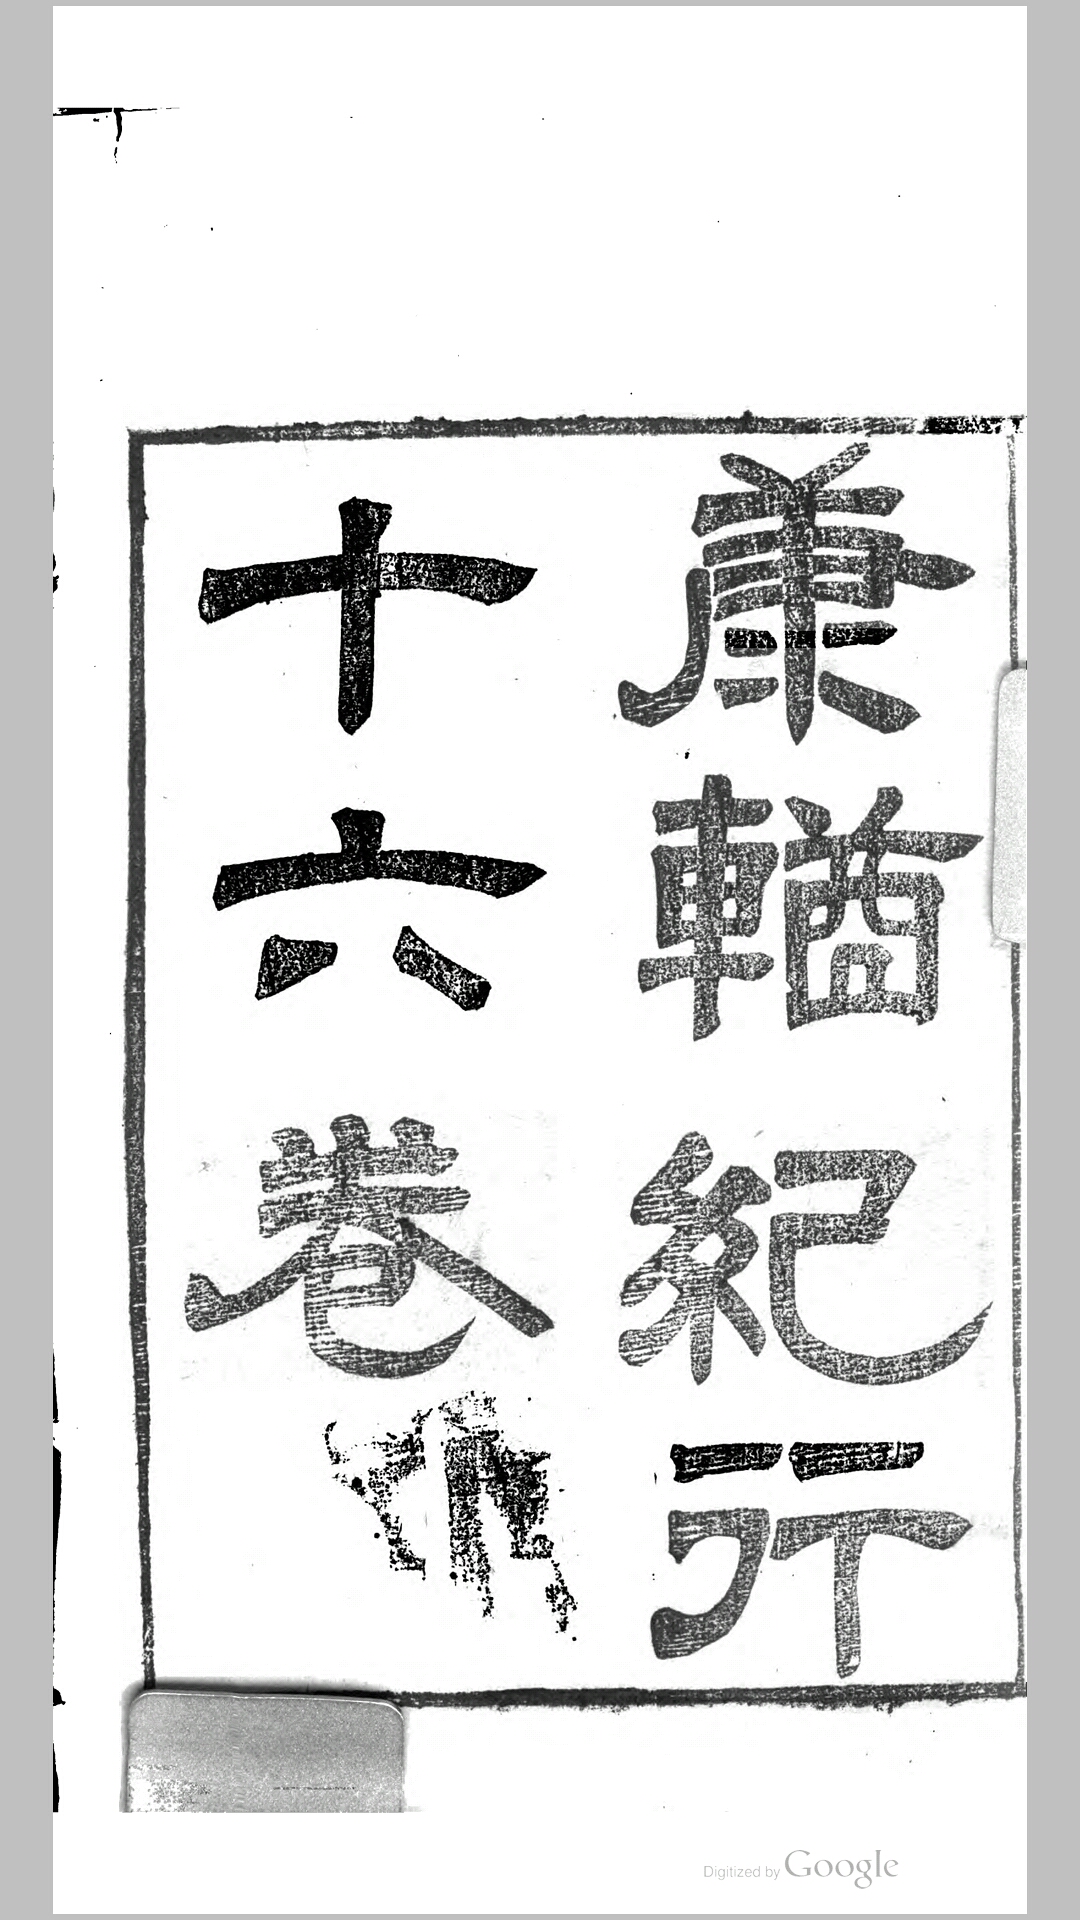 康輶紀行
十六卷
Digitized by Google